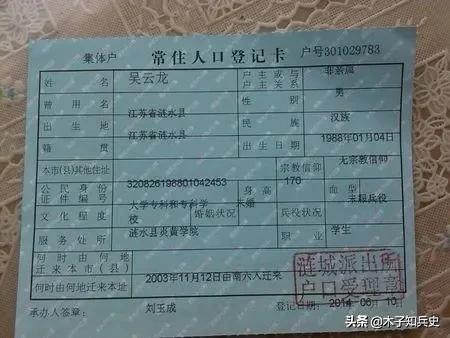 集体户 常住人口登记卡 户号301029783
姓名 吴云龙 户主或与户主关系 非亲属
曾用名 性别 男
出生地 江苏省涟水县 民族 汉族
籍贯 江苏省涟水县 出生日期 1988年01月04日
本市(县)其他住址 宗教信仰 无宗教信仰
公民身份证件编号 320826198801042453 身高 170 血型
文化程度 大学专科和专科学校 婚姻状况 未婚 兵役状况 未服兵役
服务处所 涟水县炎黄学院 职业 学生
何时由何地迁来本市(县)
何时由何地迁来本址 2003年11月12日由南六人迁来
涟城派出所
户口受理章
承办人签章: 刘玉成 登记日期: 2014 06 10
头条 @木子知兵史